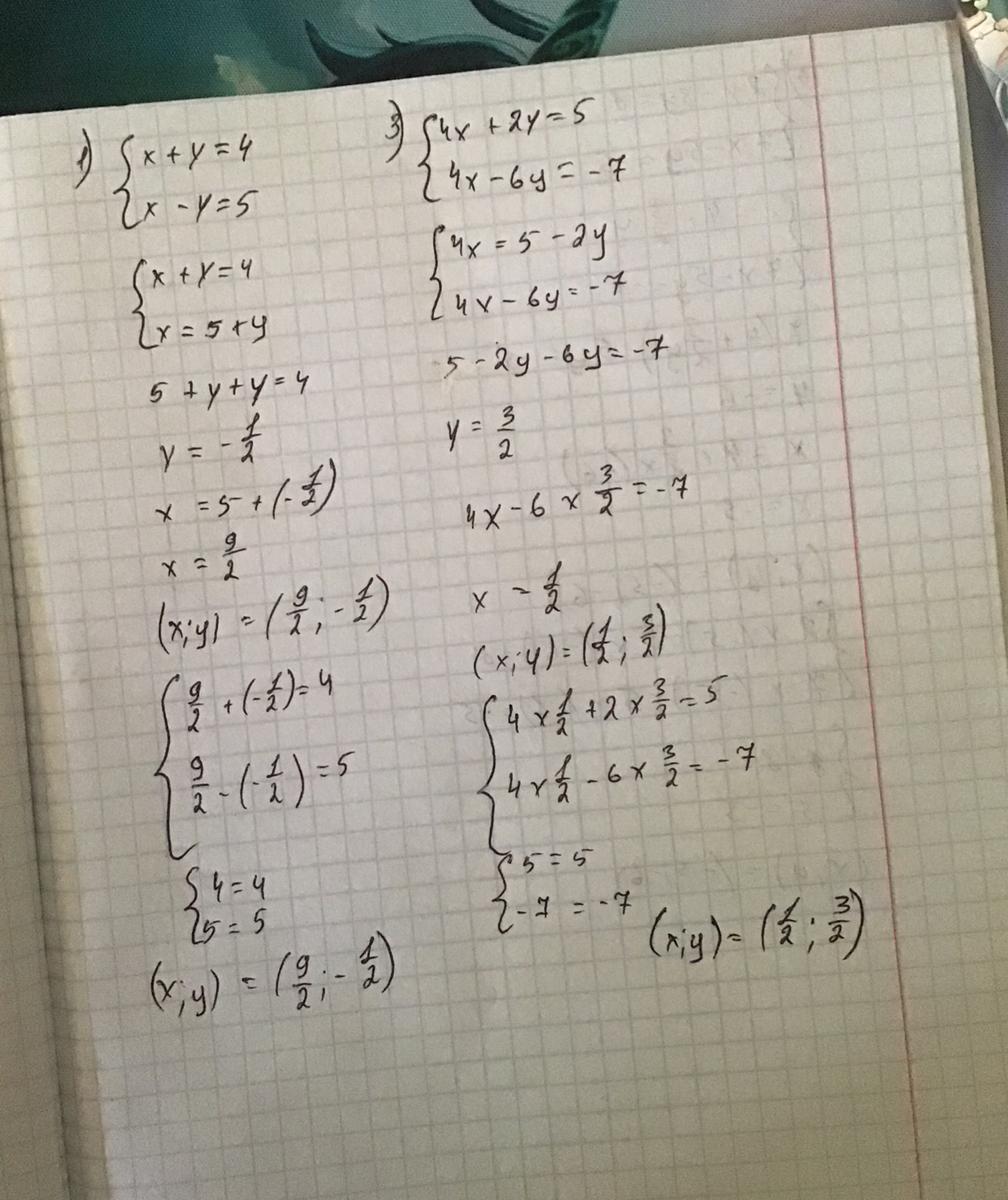 1) { x + y = 4
x - y = 5
{ x + y = 4
x = 5 + y
5 + y + y = 4
y = - 1/2
x = 5 + (- 1/2)
x = 9/2
(x; y) = (9/2; - 1/2)
{ 9/2 + (- 1/2) = 4
9/2 - (- 1/2) = 5
{ 4 = 4
5 = 5
(x; y) = (9/2; - 1/2)
3) { 4x + 2y = 5
4x - 6y = -7
{ 4x = 5 - 2y
4x - 6y = -7
5 - 2y - 6y = -7
y = 3/2
4x - 6 × 3/2 = -7
x = 1/2
(x; y) = (1/2; 3/2)
{ 4 × 1/2 + 2 × 3/2 = 5
4 × 1/2 - 6 × 3/2 = -7
{ 5 = 5
-7 = -7
(x; y) = (1/2; 3/2)